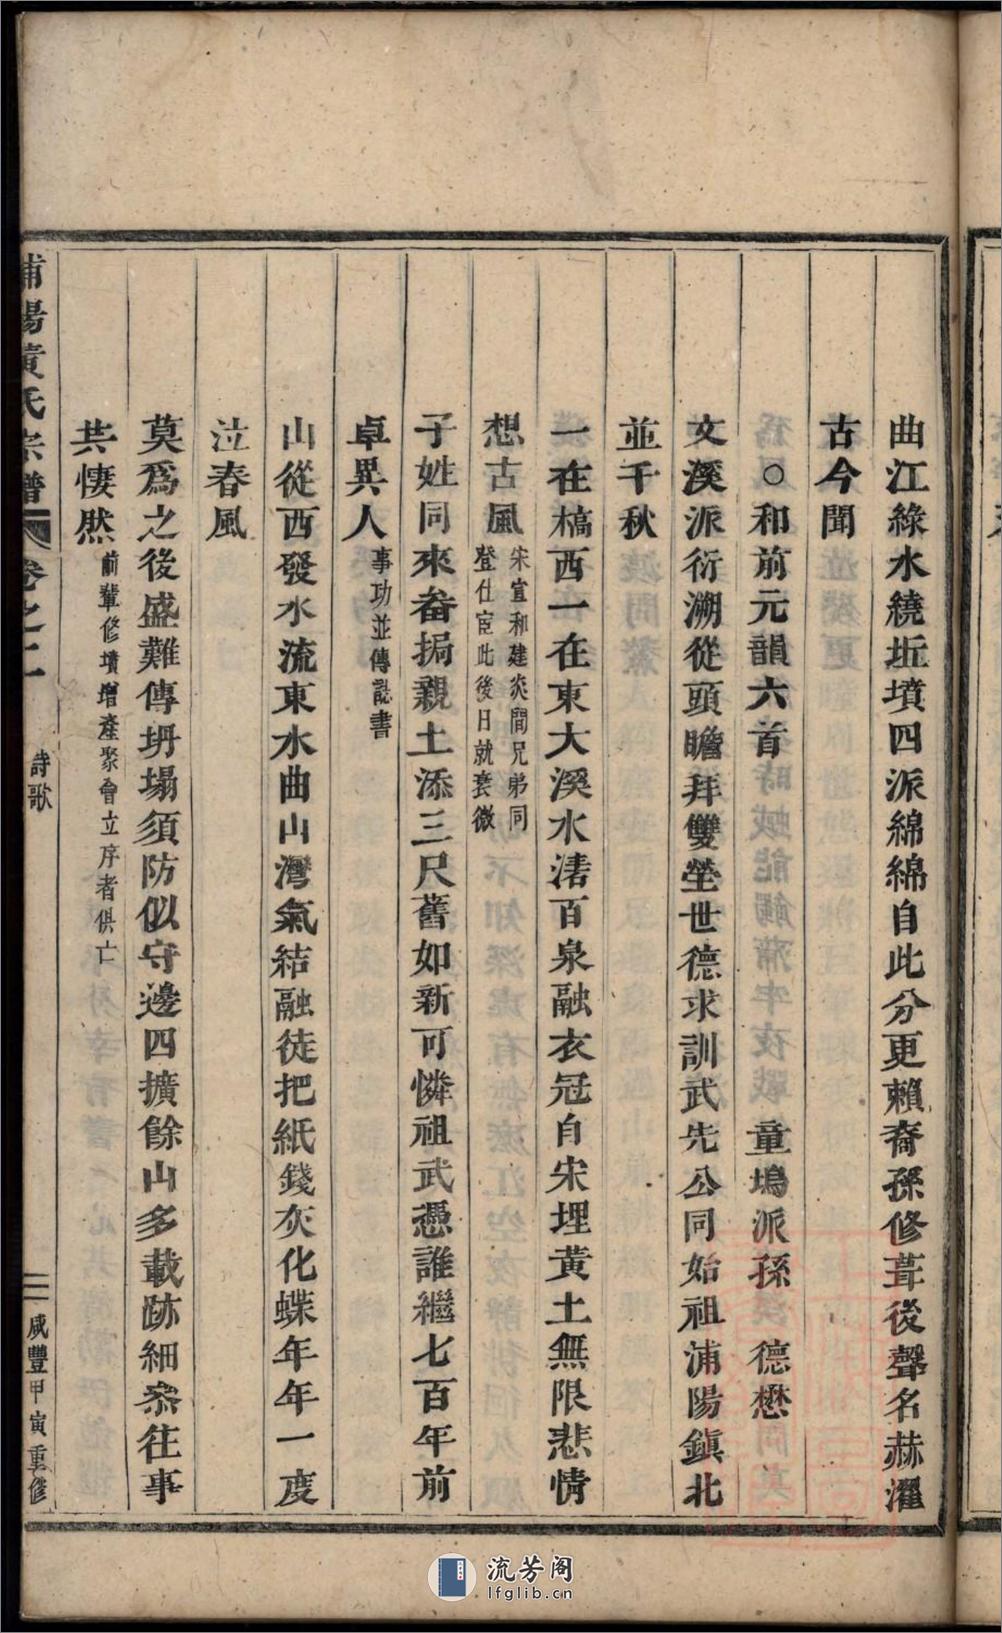 曲江綠水繞坵墳四派綿綿自此分更賴裔孫修葺後聲名赫濯
古今聞
○和前元韻六首 童塢派孫 德懋
文溪派衍溯從頭瞻拜雙塋世德求訓武先公同始祖浦陽鎭北
並千秋
一在橋西一在東大溪水渚百泉融衣冠自宋埋黃土無限悲情
想古風 宋宣和建炎間兄弟同
登仕宦此後日就衰微
子姓同來畚挶親土添三尺舊如新可憐祖武憑誰繼七百年前
卓異人 事功並傳誌書
山從西發水流東水曲山灣氣結融徒把紙錢灰化蝶年年一度
泣春風
莫爲之後盛難傳坍塌須防似守邊四擴餘山多載跡細叅往事
共悽然 前輩修墳增產聚會立序者俱亡
浦陽黃氏宗譜 卷之二 詩歌 二 咸豐甲寅重修
流芳阁
lfglib.cn